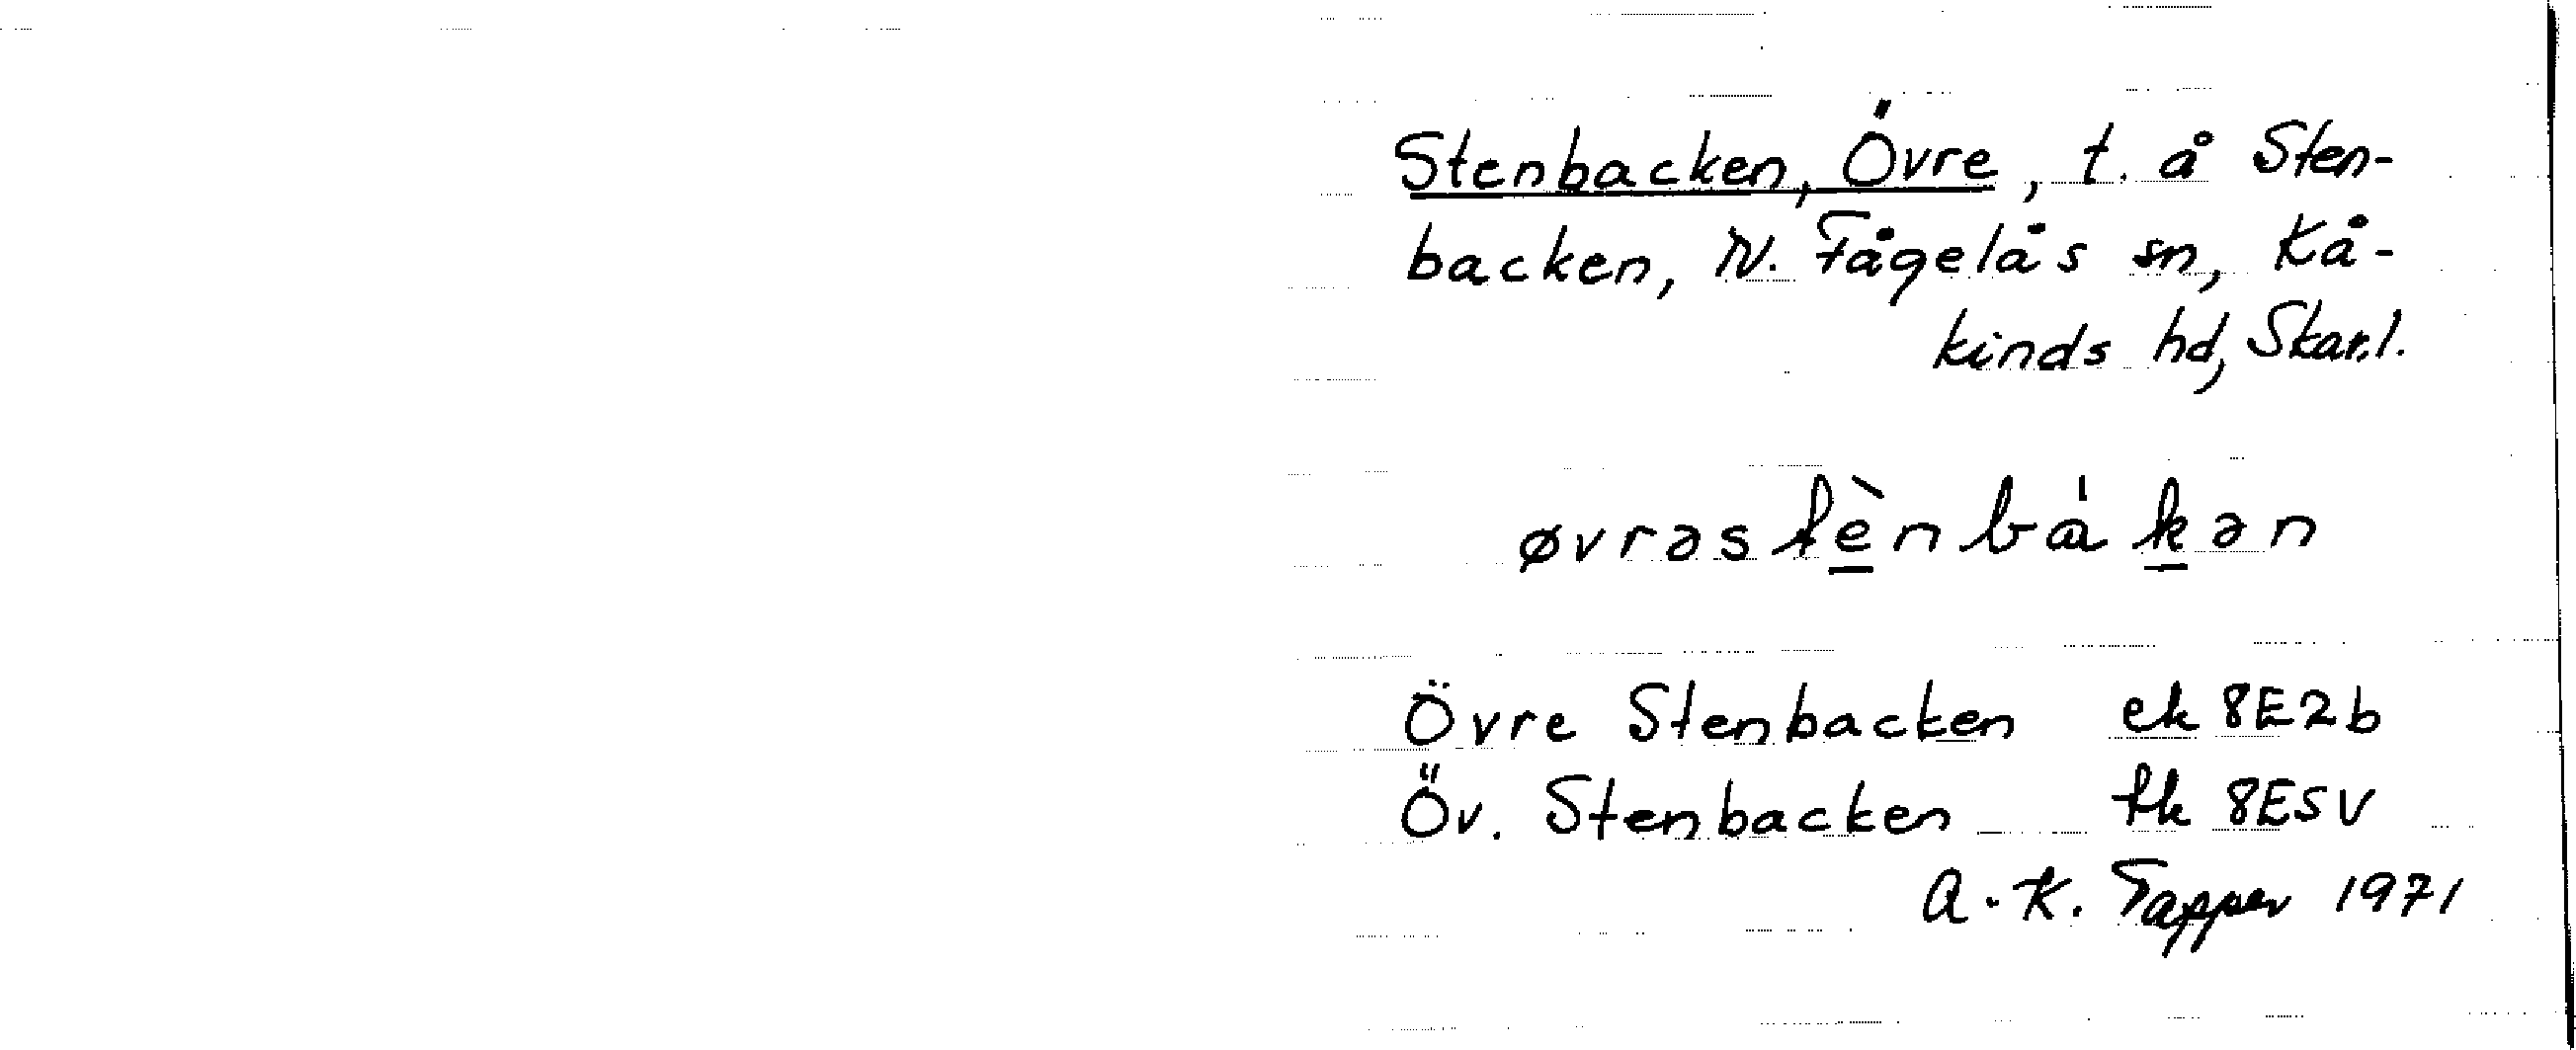 Stenbacken, Övre, t. å Sten-
backen, N. Fågelås sn, Kå-
kinds hd, Skar.l.
øvrəstènbákən
Övre Stenbacken ek 8E2b
Öv. Stenbacken tk 8ESV
A.K. Tapper 1971